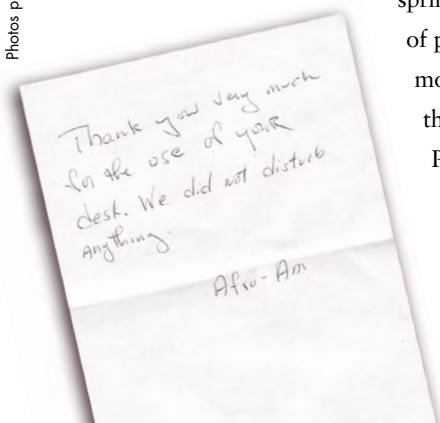 Photos p
sprin
of p
mo
th
P
Thank your very much
for the use of your
desk. We did not disturb
anything.
Afro-Am